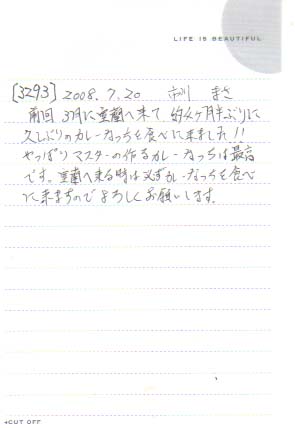 LIFE IS BEAUTIFUL
[3293] 2008.7.20 市川 まさ
前回 3月に室蘭へ来て、約4ヶ月半ぶりに
久しぶりのカレーなっちを食べに来ました!!
やっぱりマスターの作るカレーなっちは最高
です。室蘭へ来る時は必ずカレーなっちを食べ
に来ますのでよろしくお願いします。
+CUT OFF